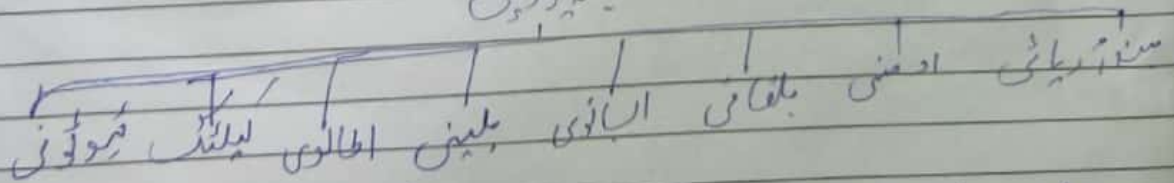 ہند آریائی ارمنی بلقانی البانوی ہیلینی اطالوی کیلٹک ٹیوٹونی